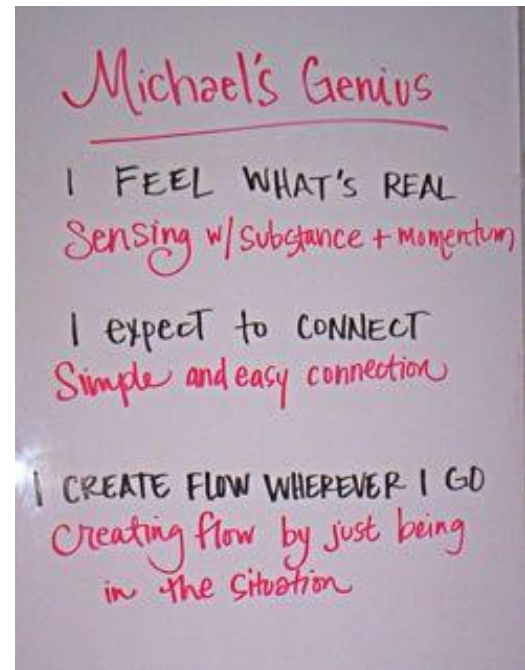 Michael's Genius
I FEEL WHAT'S REAL
Sensing w/ substance + momentum
I expect to CONNECT
Simple and easy connection
I CREATE FLOW WHEREVER I GO
Creating flow by just being
in the situation